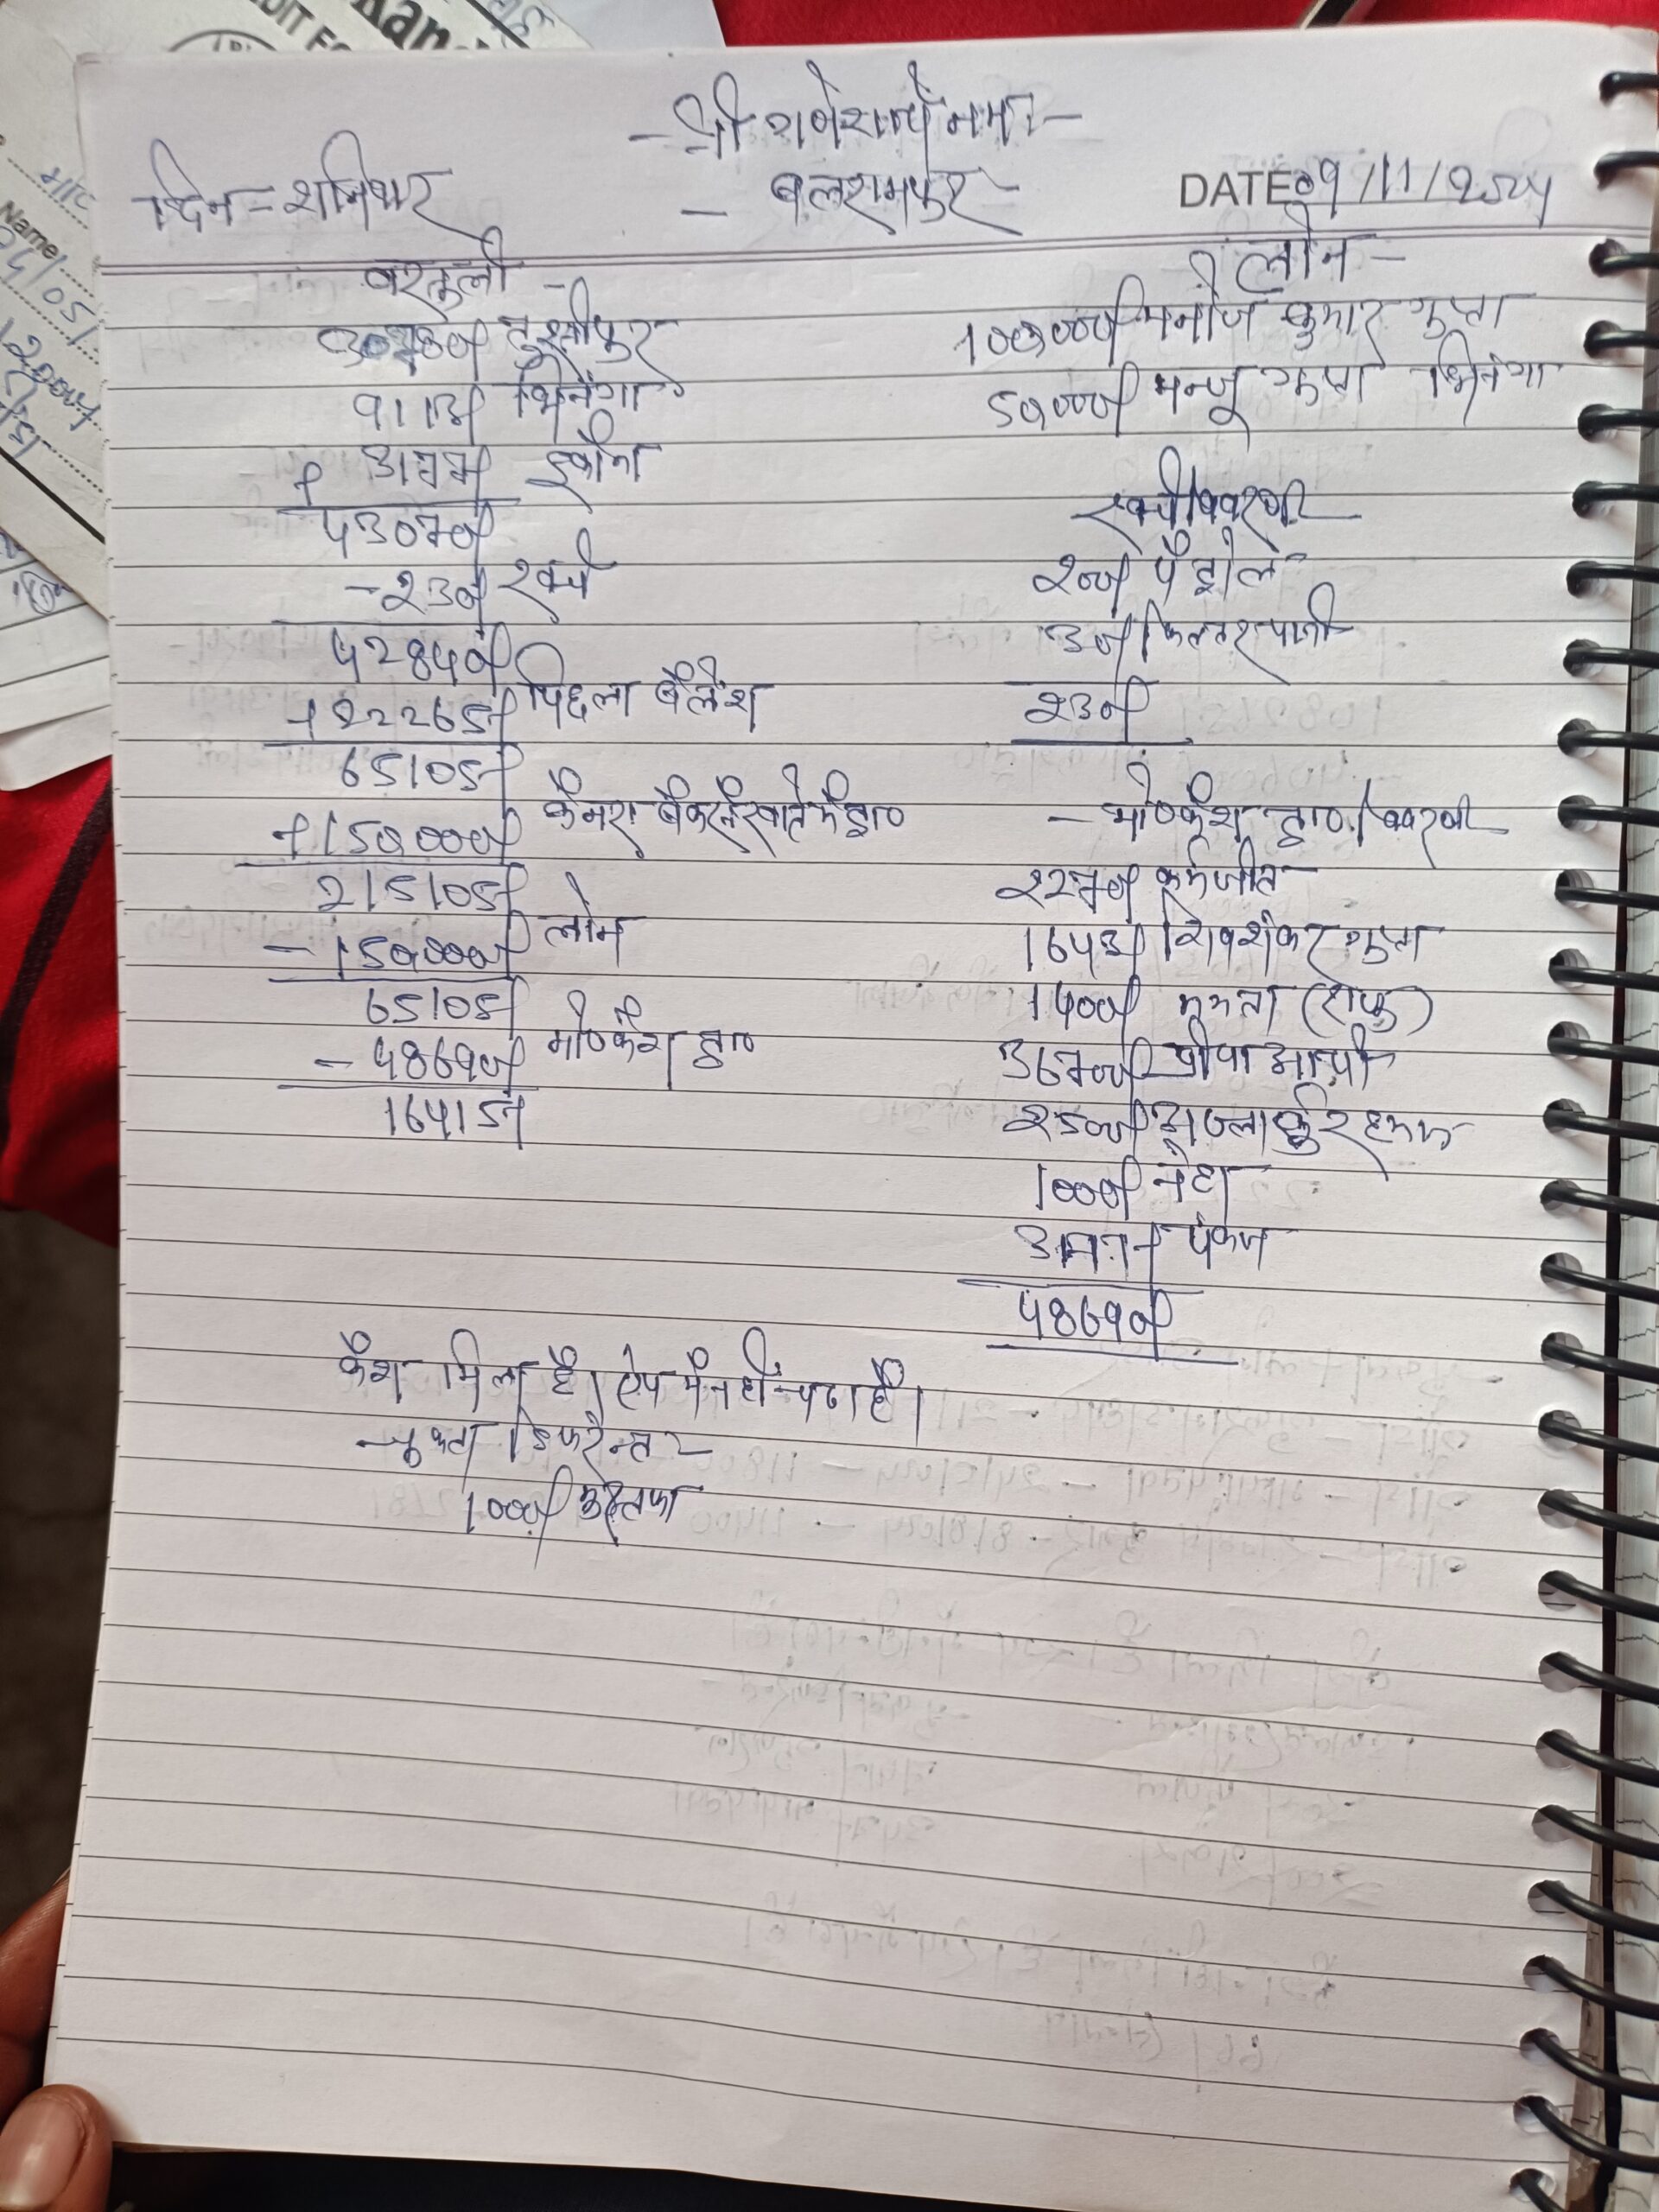 -श्री गणेशाय नमः-
दिन-शनिवार
- बलरामपुर-
DATE 09/11/2024
वसूली -
30780/- तुलसीपुर
9113/- भिनगा
+ 3177/- इकौना
43070/-
-230/- खर्च
42840/-
+22265/- पिछला बैलेंश
65105/-
+150000/- केनरा बैंक से खाते में ट्रा०
215105/-
-150000/- लोन
65105/-
-48690/- मो०कैश ट्रा०
16415/-
लोन-
100000/- मनोज कुमार गुप्ता
50000/- मन्जू गुप्ता भिनगा
खर्च विवरण
200/- पैट्रोल
30/- फिल्टर पानी
230/-
-मो०कैश ट्रा० विवरण
2270/- कर्मजीत
1643/- शिवशंकर गुप्ता
1400/- ममता
36700/-
2500/-
1000/- नेहा
3177/- पंकज
48690/-
कैश मिला है। ऐप में नहीं चढा है।
-मुक्ता डिफरेन्त-
1000/- मुस्तफा